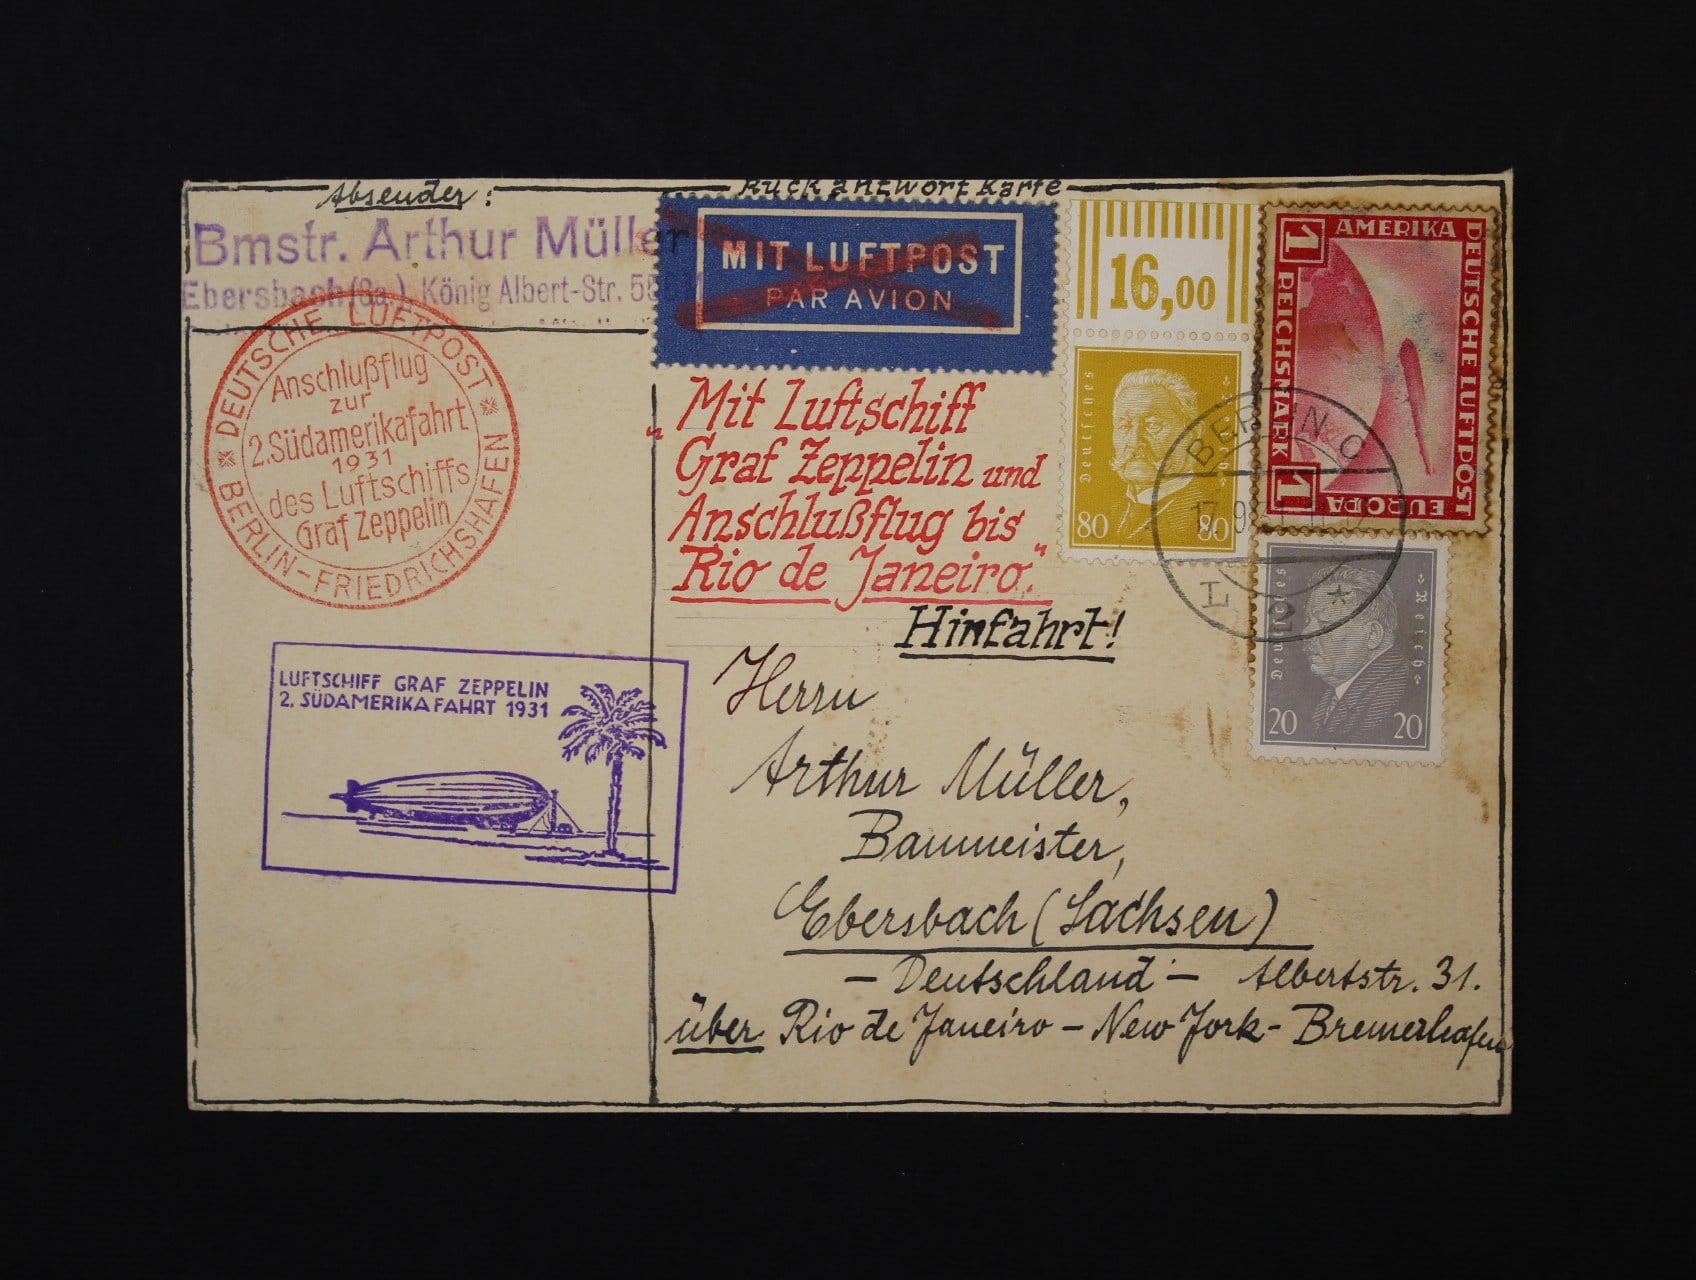 Absender:
Rückantwortkarte
Bmstr. Arthur Müller
Ebersbach (Sa.), König Albert-Str.
MIT LUFTPOST
PAR AVION
16,00
AMERIKA
DEUTSCHE LUFTPOST
EUROPA
1 REICHSMARK 1
DEUTSCHE LUFTPOST
Anschlußflug
zur
2. Südamerikafahrt
1931
des Luftschiffs
Graf Zeppelin
BERLIN-FRIEDRICHSHAFEN
„Mit Luftschiff
Graf Zeppelin und
Anschlußflug bis
Rio de Janeiro."
Hinfahrt!
Deutsches Reich
80 80
BERLIN C
17.9.
L 2 *
Deutsches Reich
20 20
LUFTSCHIFF GRAF ZEPPELIN
2. SÜDAMERIKAFAHRT 1931
Herrn
Arthur Müller,
Baumeister,
Ebersbach (Sachsen)
- Deutschland - Albertstr. 31.
über Rio de Janeiro - New York - Bremerhafen